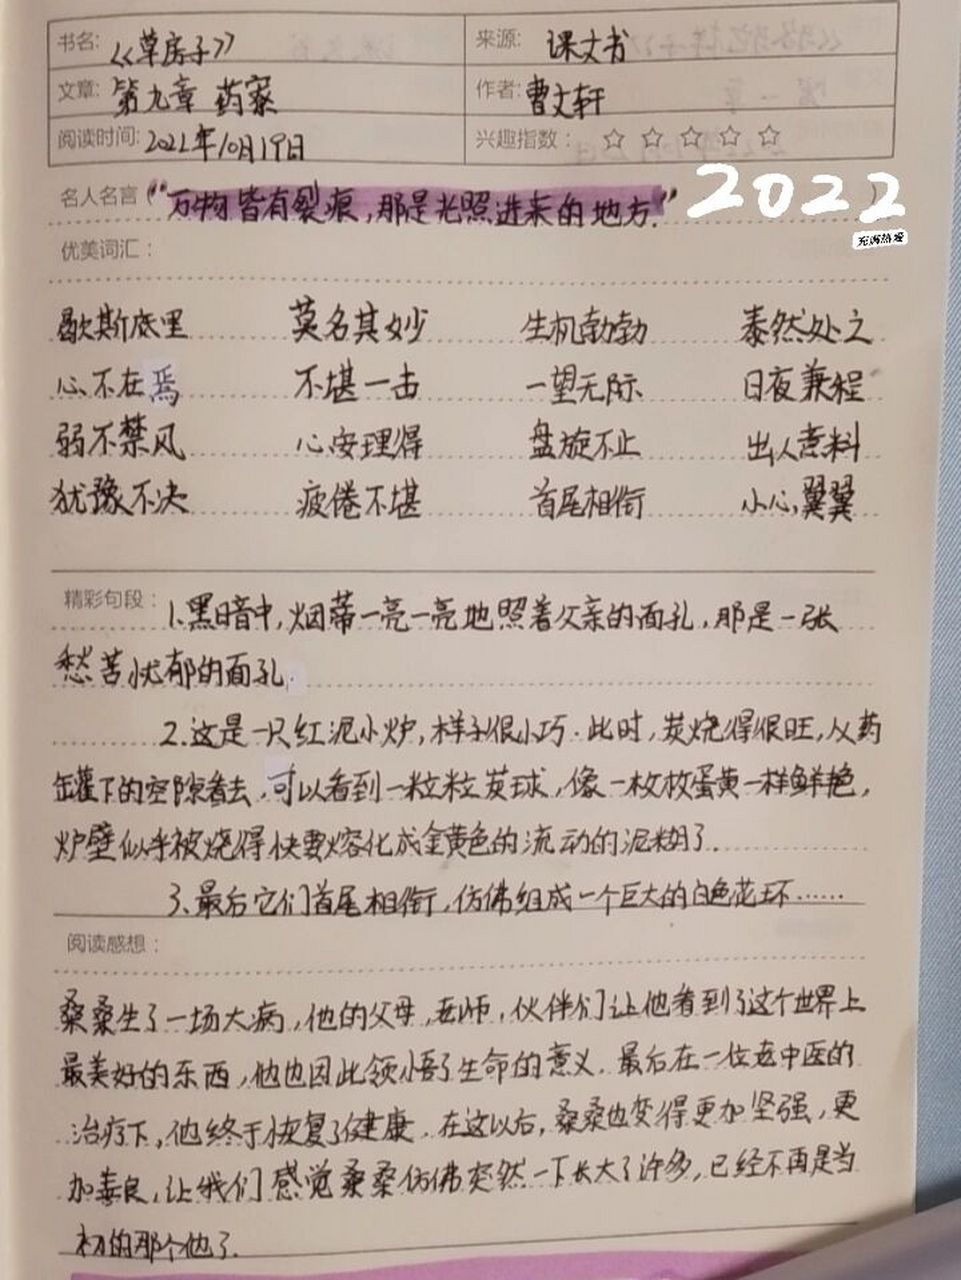 书名: 《草房子》 来源: 课文书
文章: 第九章 药寮 作者: 曹文轩
阅读时间: 2022年10月19日 兴趣指数: ☆ ☆ ☆ ☆ ☆
名人名言 (“万物皆有裂痕,那是光照进来的地方.” )
2022
充满热爱
优美词汇:
歇斯底里 莫名其妙 生机勃勃 泰然处之
心不在焉 不堪一击 一望无际 日夜兼程
弱不禁风 心安理得 盘旋不止 出人意料
犹豫不决 疲倦不堪 首尾相衔 小心翼翼
精彩句段: 1.黑暗中,烟蒂一亮一亮地照着父亲的面孔,那是一张
愁苦忧郁的面孔.
2.这是一只红泥小炉,样子很小巧.此时,炭烧得很旺,从药
罐下的空隙看去,可以看到一粒粒炭球,像一枚枚蛋黄一样鲜艳,
炉壁似乎被烧得快要熔化成金黄色的流动的泥糊了.
3、最后它们首尾相衔,仿佛组成一个巨大的白色花环……
阅读感想:
桑桑生了一场大病,他的父母,老师,伙伴们让他看到了这个世界上
最美好的东西,他也因此领悟了生命的意义.最后在一位老中医的
治疗下,他终于恢复了健康.在这以后,桑桑也变得更加坚强,更
加善良,让我们感觉桑桑仿佛突然一下长大了许多,已经不再是当
初的那个他了.